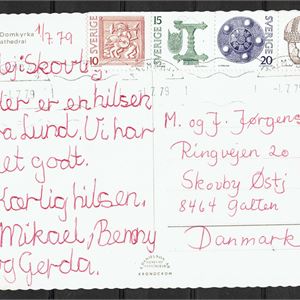 Domkyrka
athedral
1/7.79
SVERIGE 10
SVERIGE 15
SVERIGE
SVERIGE 20
-1.7.79
ej i Skovby.
er er en hilsen
a Lund. Vi har
et godt.
Kærlig hilsen.
Mikael, Benny
og Gerda.
M. og J. Jørgens
Ringvejen 20
Skovby Østj
8464 Galten
Danmark
GRÖNOCROM